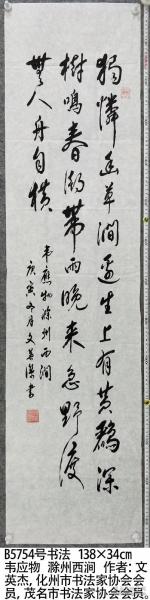 獨憐幽草澗邊生上有黄鸝深
樹鳴春潮帶雨晚来急野渡
無人舟自横
韦應物滁州西澗
庚寅冬月文英傑書
B5754号书法 138×34cm
韦应物 滁州西涧 作者:文
英杰,化州市书法家协会会
员,茂名市书法家协会会员。